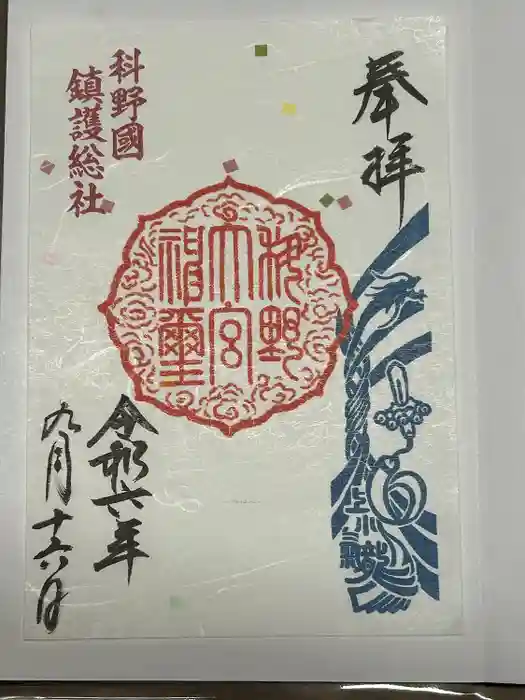 奉拝
科野國
鎮護総社
科野
大宮
神璽
上小
龍
令和六年
九月十六日